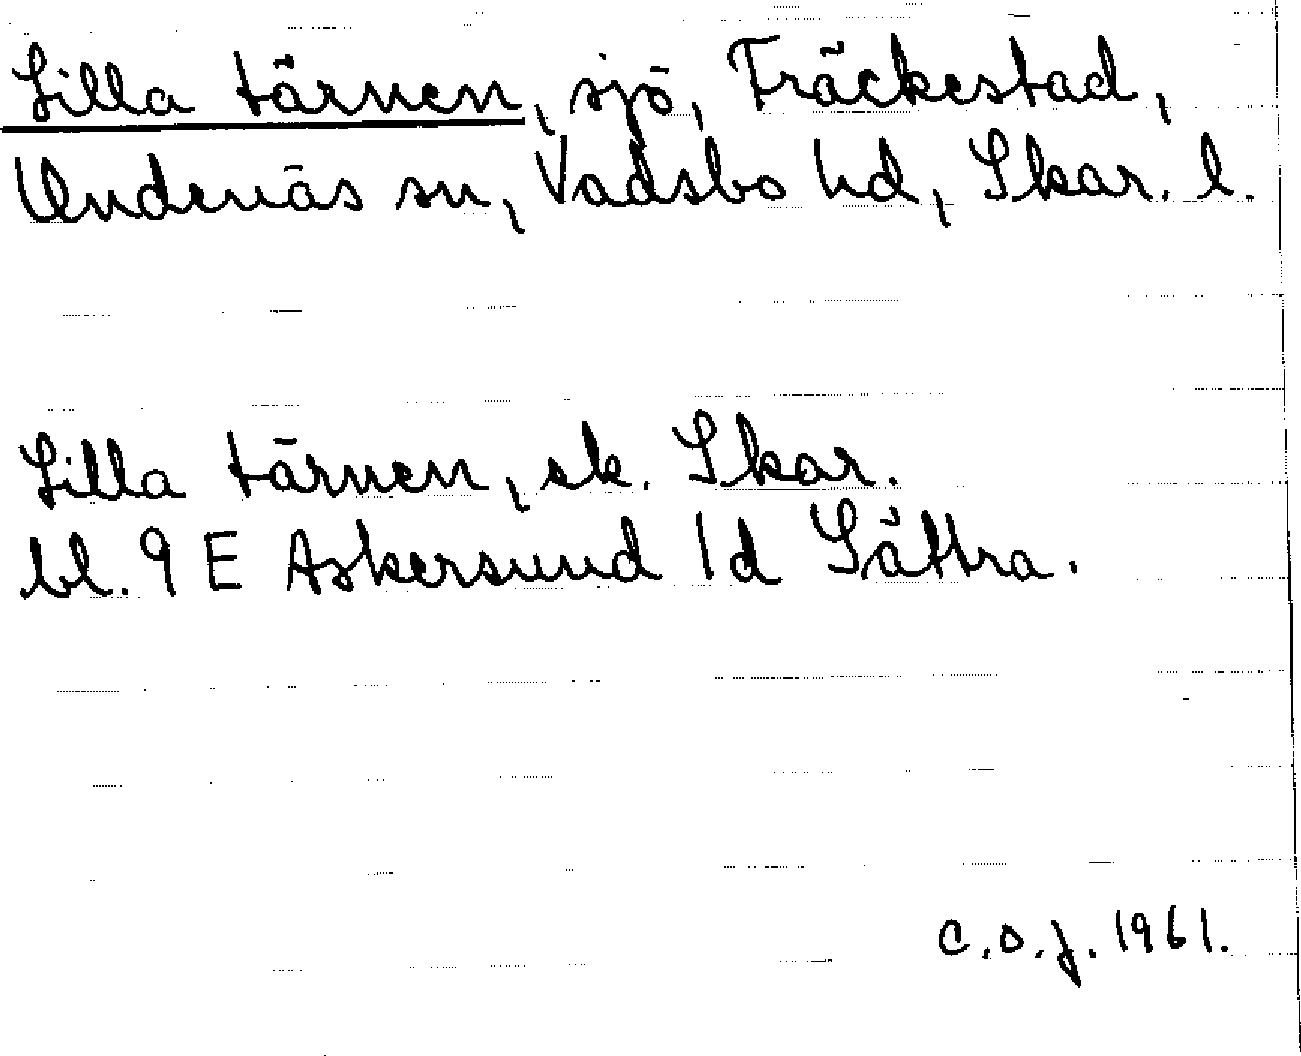 Lilla tärnen, sjö, Träckestad,
Undenäs sn, Vadsbo hd, Skar. l.
Lilla tärnen, ek. Skar.
bl. 9 E Askersund 1d Sätra.
C.O.J. 1961.